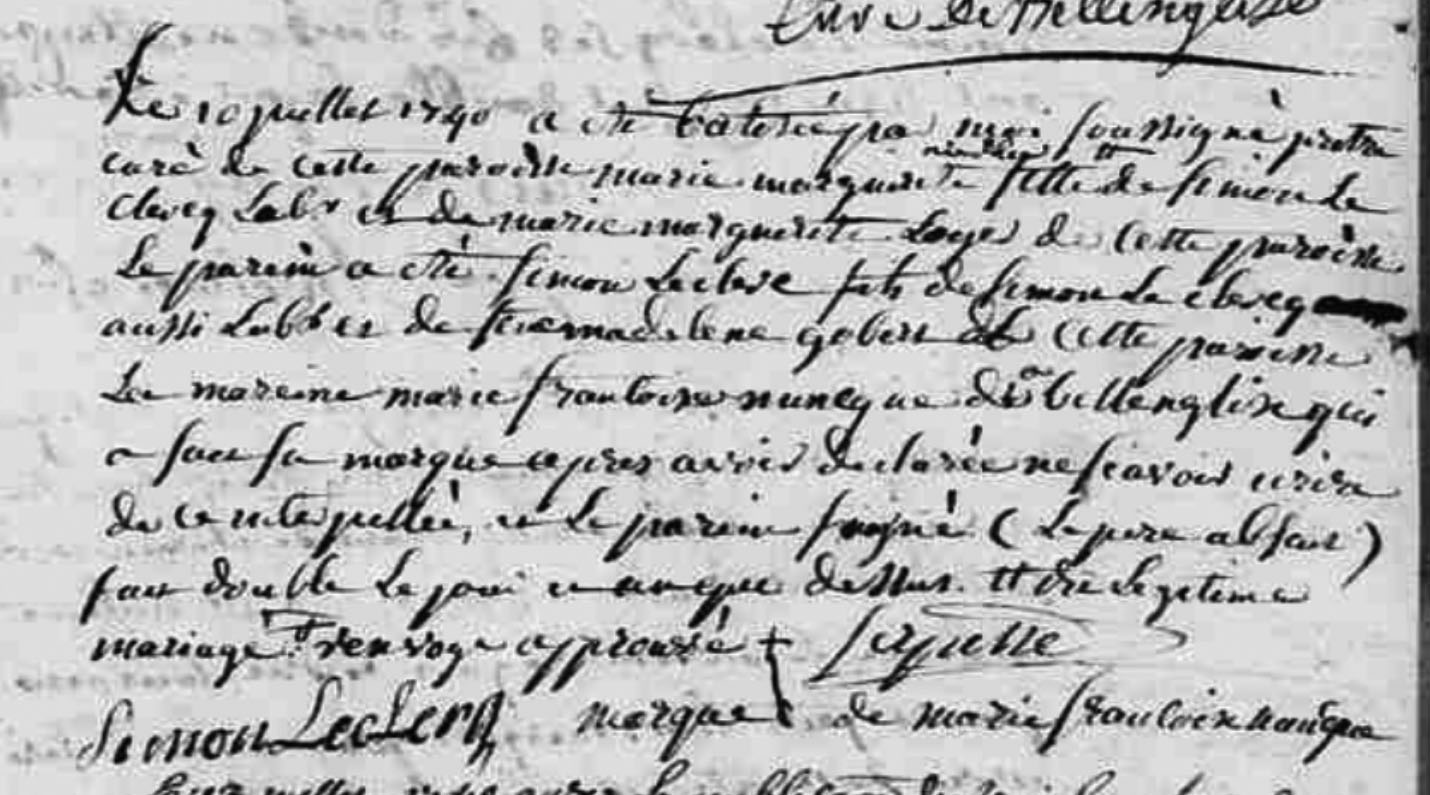 Curé de Bellenglise
Le 10 juillet 1790 a été batisé par moi soussigné pretre
curé de cette paroisse marie marguerite fille de simon le
clercq Labr et de marie marguerite Loyer de cette paroisse
Le parein a été simon Leclerc fils de simon Le clercq
aussi Labr et de madelene gobert de cette paroisse
La mareine marie francoise de bellenglise qui
a fait sa marque apres avoir declarée ne scavoir ecrire
de ce interpellée, et Le parein signé (Le pere absent)
fait double Le jour et an que dessus. tt de Legitime
mariage. renvoye approuvé +
Simon LecLerq marque de marie francoise